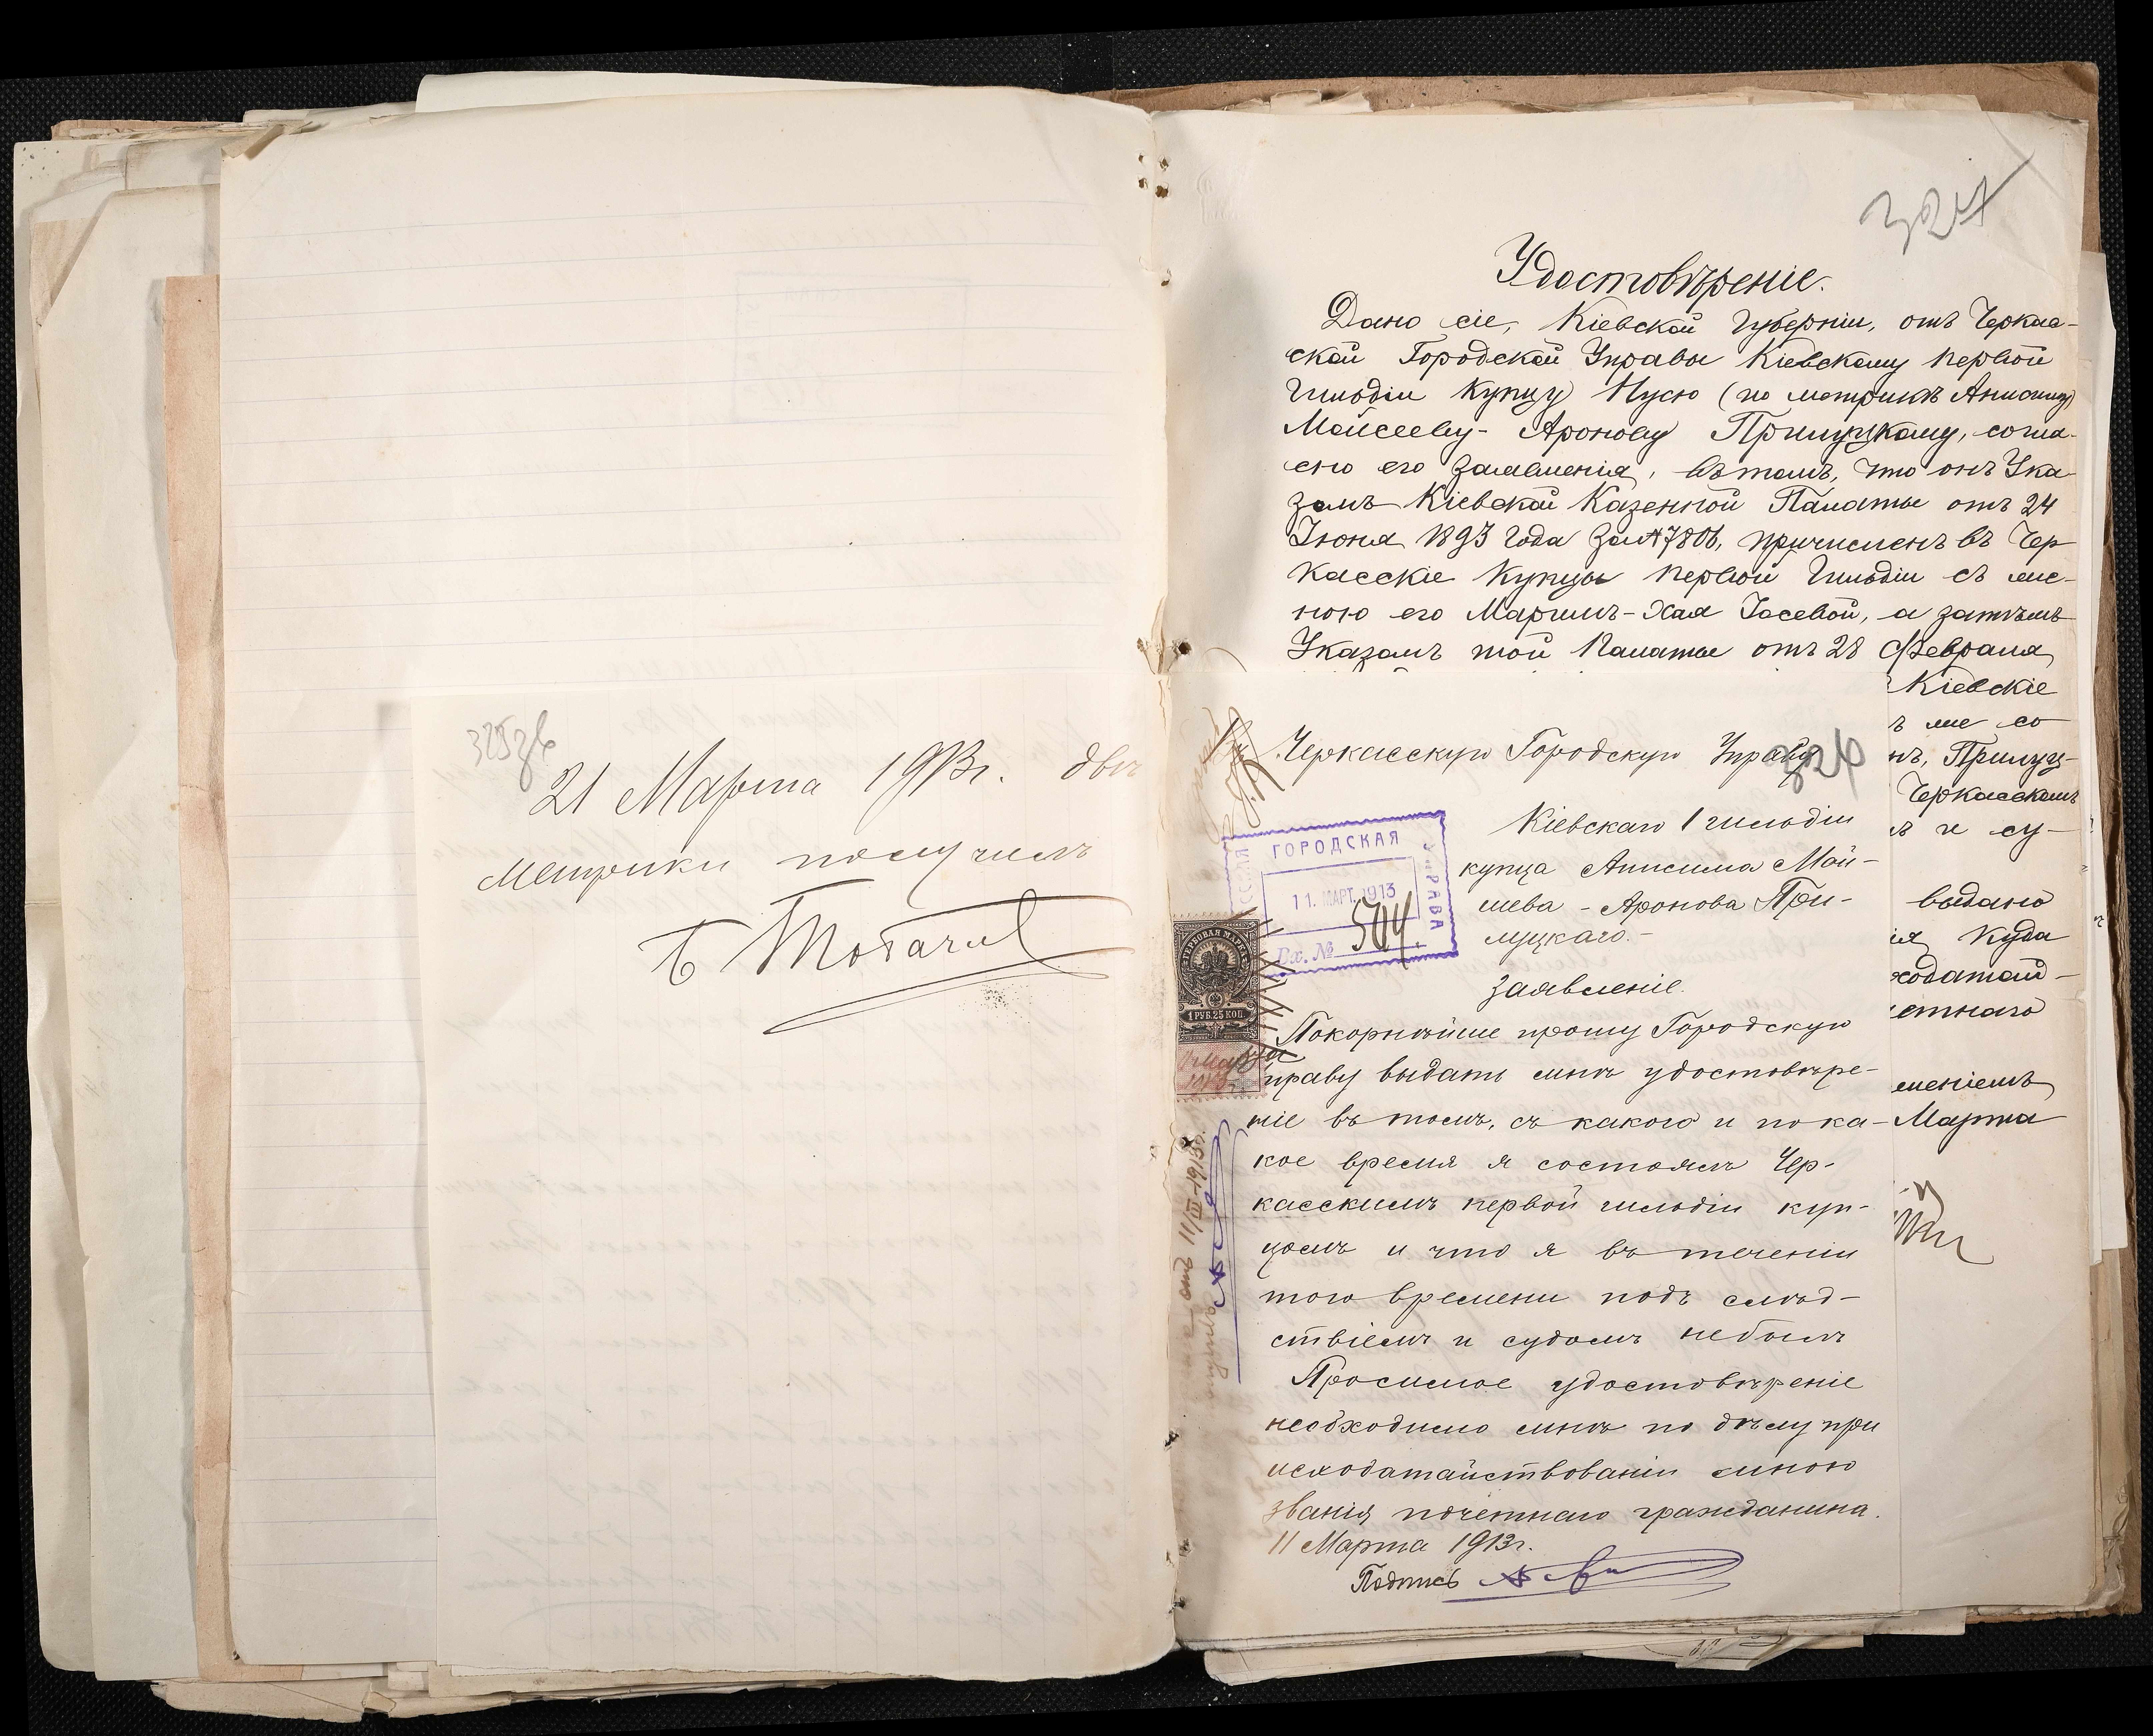 325 зв
21 Марта 1913 г. две
метрики получилъ
Б Тогачи
327
Удостовѣреніе.
Дано сіе, Кіевской губерніи, отъ Черкас-
ской Городской Управы Кіевскому первой
гильдіи купцу Нусю (по метрикѣ Анисиму)
Мойсееву-Аронову Прилуцкому, согла-
сно его заявленія, въ томъ, что онъ Ука-
зомъ Кіевской Казенной Палаты отъ 24
Іюня 1893 года за № 7806, причисленъ въ Чер
касскіе купцы первой гильдіи съ же-
ною его Маримъ-Хая Іосевой, а затѣмъ
Указомъ той Палаты отъ 28 Февраля
Кіевскіе
ъ же со
нъ, Прилуц-
Черкасскомъ
ъ и су-
выдано
ія куда
ходатай-
етнаго
женіемъ
Марта
Въ Черкасскую Городскую Управу
326
ГОРОДСКАЯ
УПРАВА
11. МАРТ. 1913
Вх. № 504.
Кіевскаго 1 гильдіи
купца Анисима Мой-
шева-Аронова При-
луцкаго.-
Заявленіе.
ГЕРБОВАЯ МАРКА
1 РУБ. 25 КОП.
11 Марта
1913 г.
Покорнѣйше прошу Городскую
Управу выдать мнѣ удостовѣре-
ніе въ томъ, съ какого и по ка-
кое время я состоялъ Чер-
касскимъ первой гильдіи куп-
цомъ и что я въ теченіи
того времени подъ слѣд-
ствіемъ и судомъ не былъ
Просимое удостовѣреніе
необходимо мнѣ по дѣлу при
исходатайствованіи мною
званія почетнаго гражданина.
11 Марта 1913 г.
Подпись
отъ 11/III-1913 г.